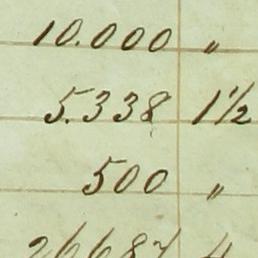 10.000 "
5.338 1½
500 "
26687 4